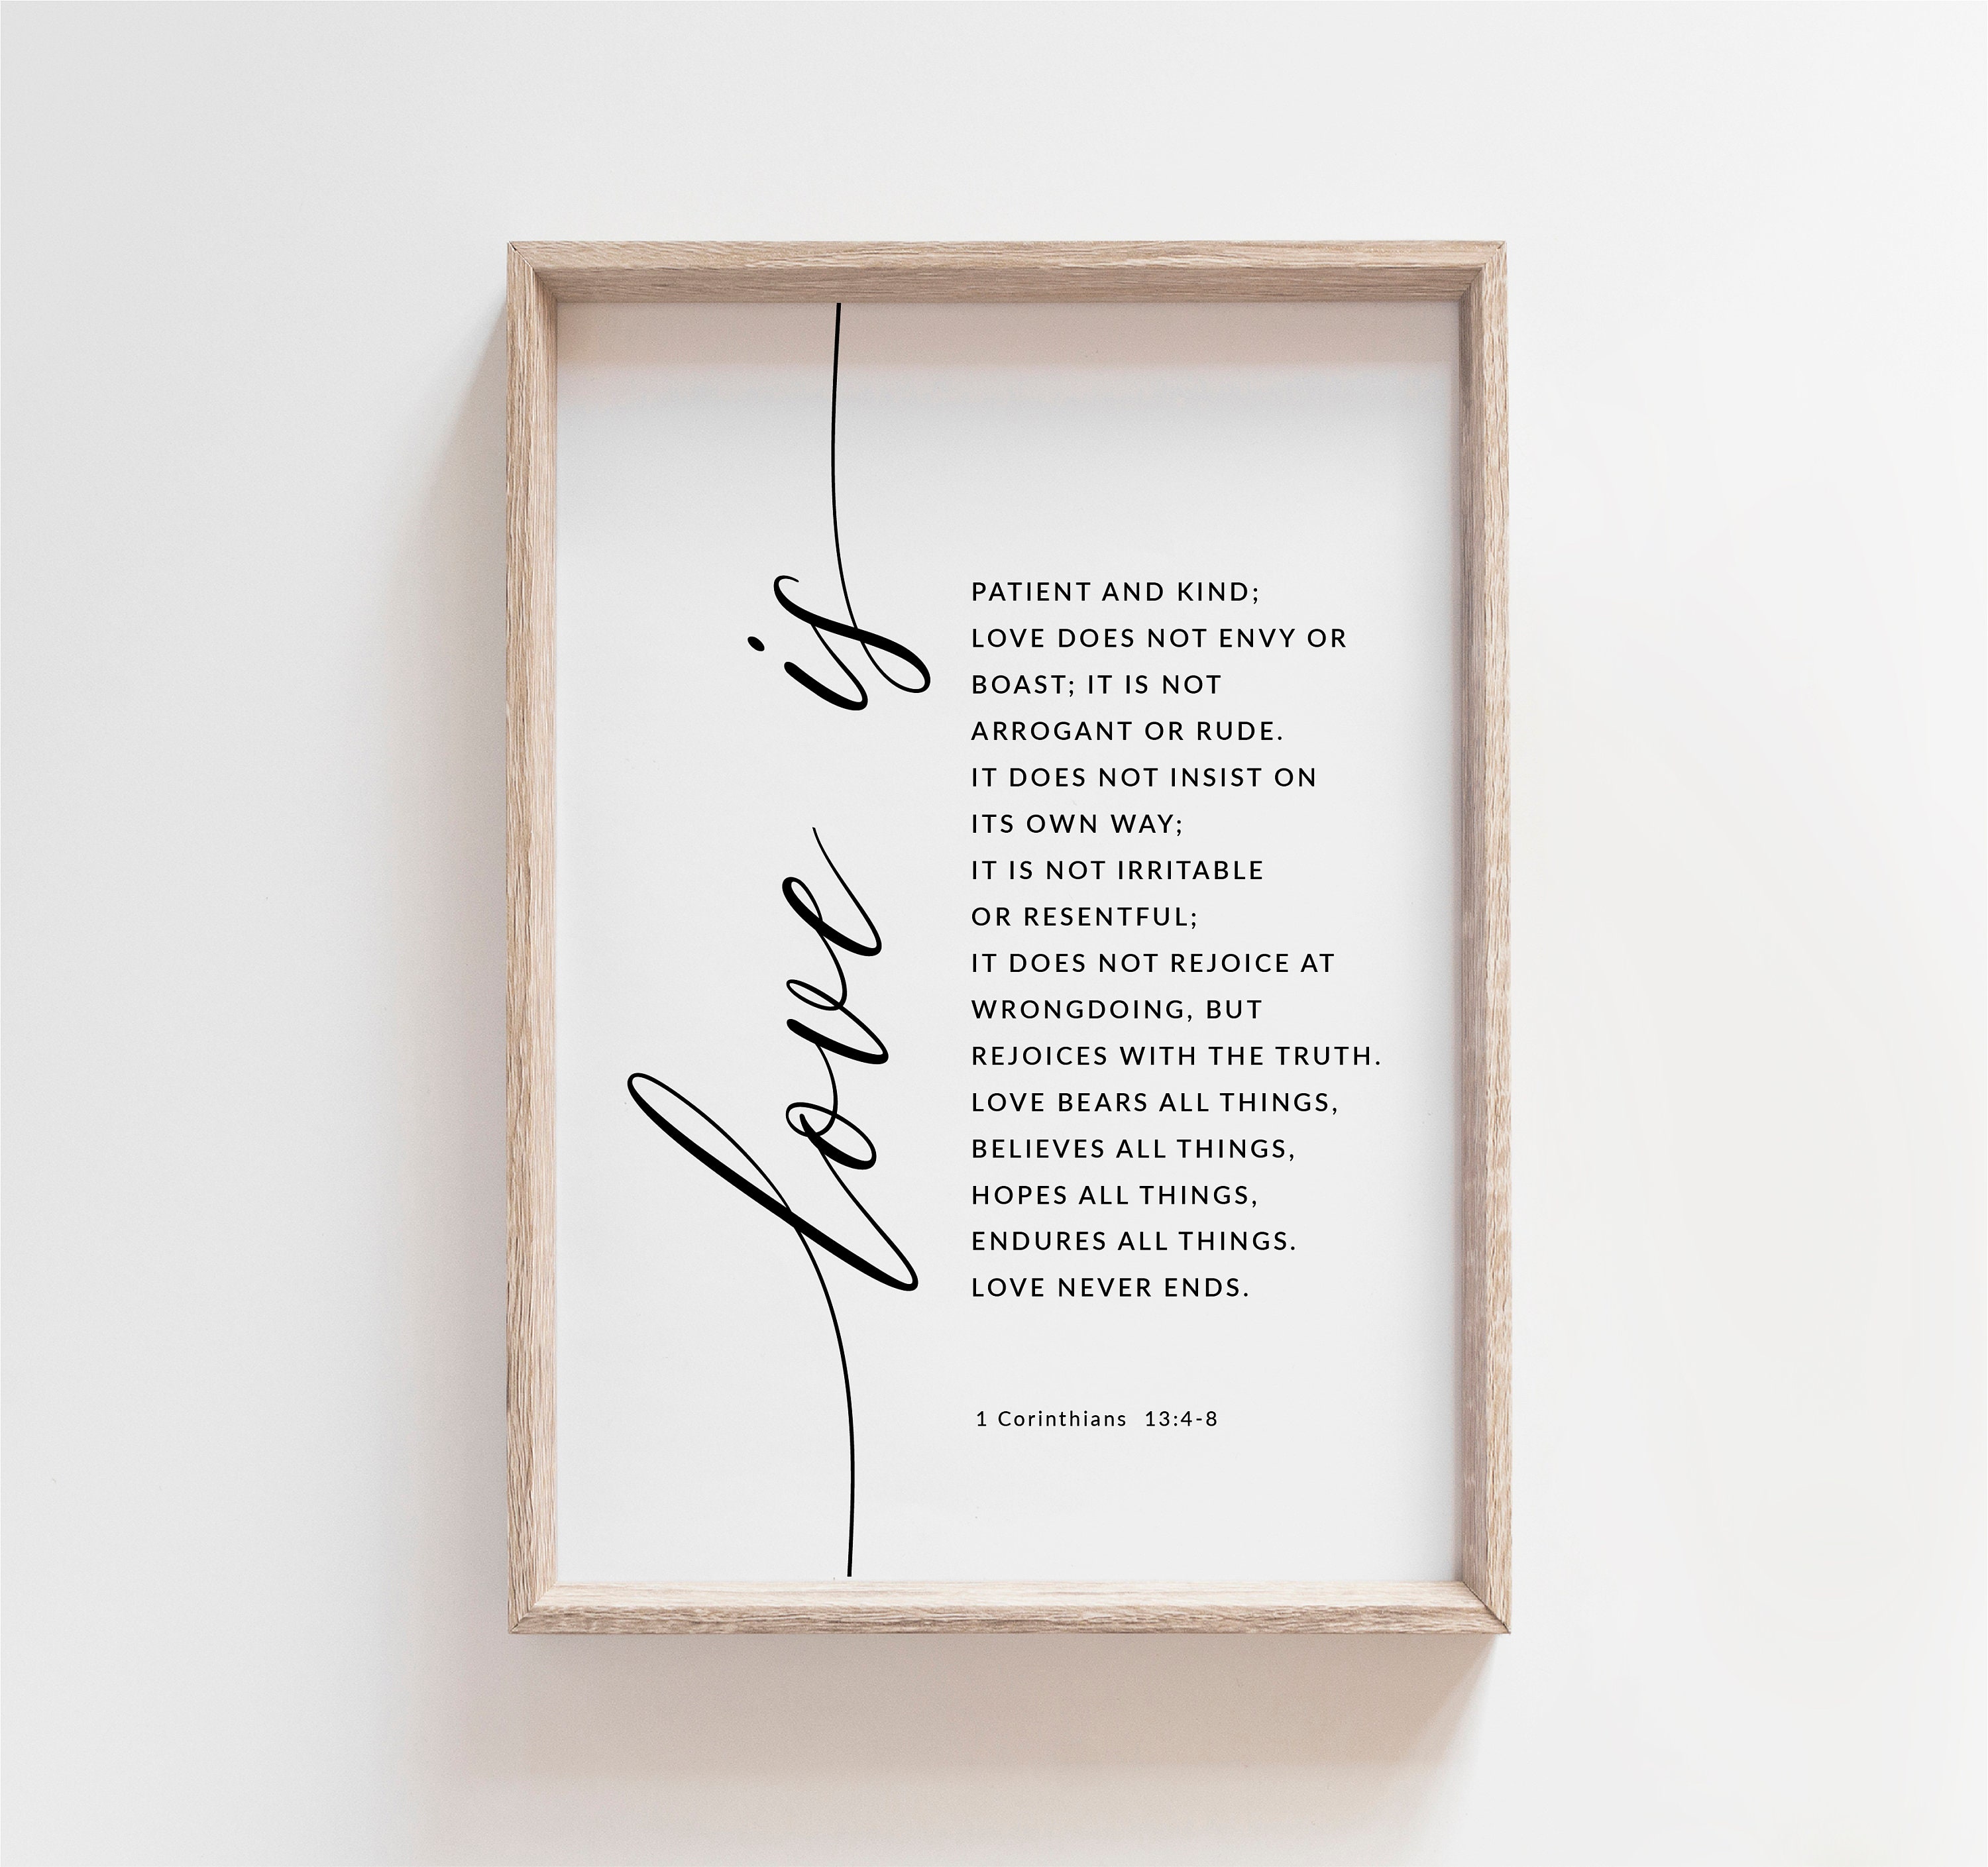 love is
PATIENT AND KIND;
LOVE DOES NOT ENVY OR
BOAST; IT IS NOT
ARROGANT OR RUDE.
IT DOES NOT INSIST ON
ITS OWN WAY;
IT IS NOT IRRITABLE
OR RESENTFUL;
IT DOES NOT REJOICE AT
WRONGDOING, BUT
REJOICES WITH THE TRUTH.
LOVE BEARS ALL THINGS,
BELIEVES ALL THINGS,
HOPES ALL THINGS,
ENDURES ALL THINGS.
LOVE NEVER ENDS.
1 Corinthians 13:4-8